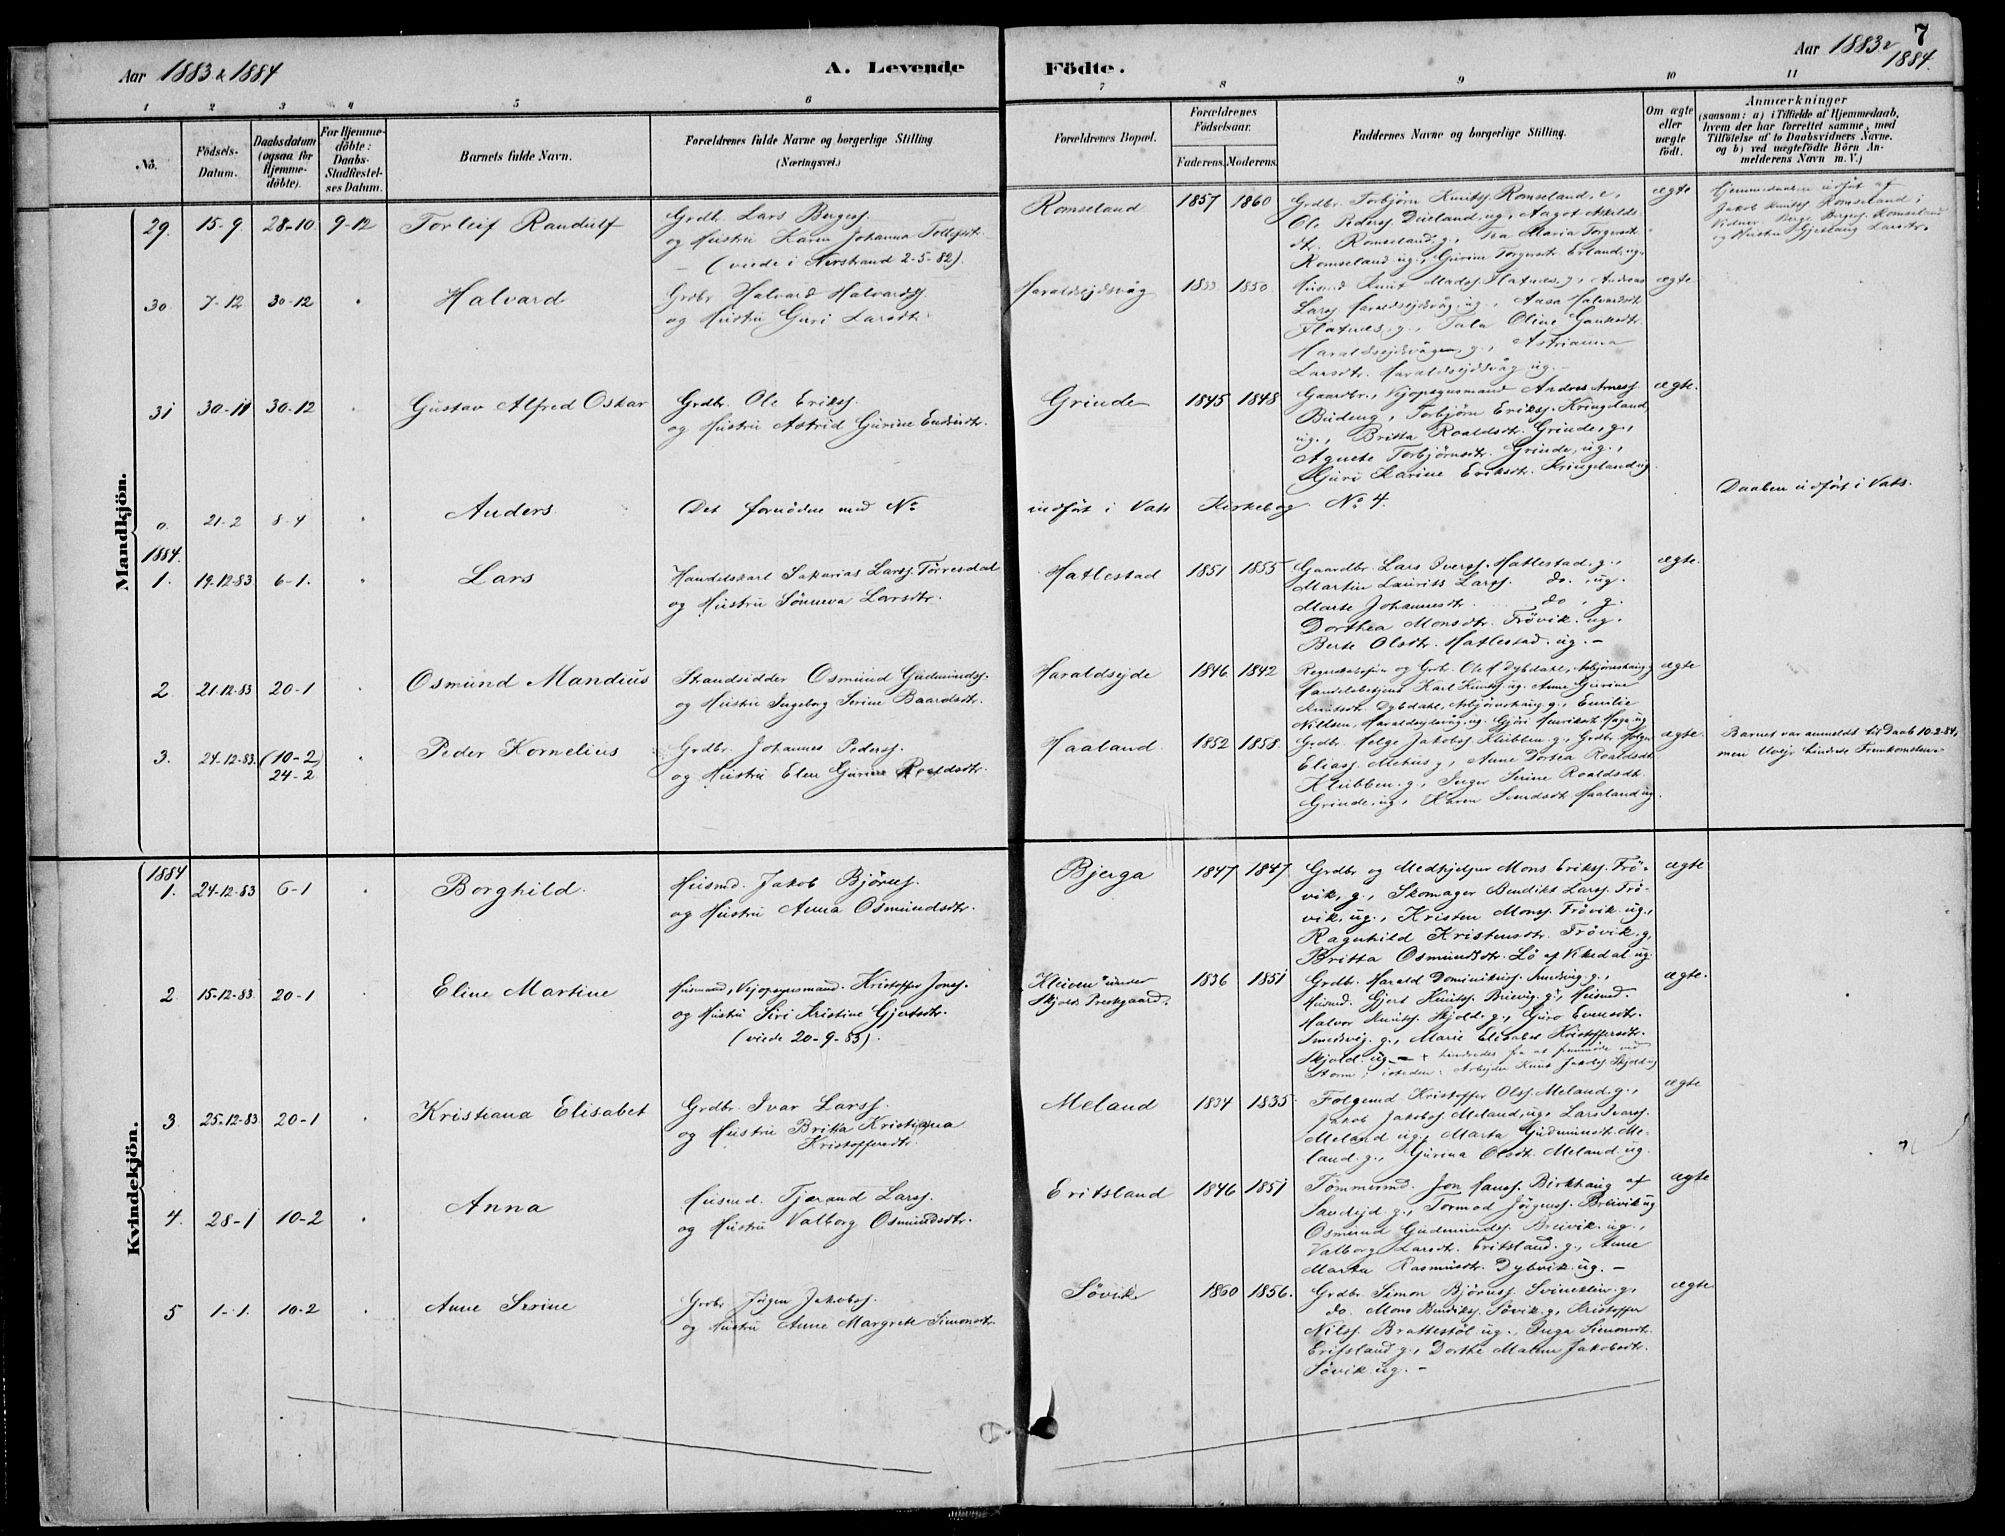 Aar 1883 & 1884
A. Levende
Födte.
Aar 1883 &
1884.
7
1 2 3 4 5 6 7 8 9 10 11
No.
Födsels-
Datum.
Daabsdatum
(ogsaa for
Hjemme-
döbte).
For Hjemme-
döbte:
Daabs-
Stadfæstel-
ses Datum.
Barnets fulde Navn.
Forældrenes fulde Navne og borgerlige Stilling
(Næringsvei.)
Forældrenes Bopæl.
Forældrenes
Födselsaar.
Faderens. Moderens.
Faddernes Navne og borgerlige Stilling.
Om ægte
eller
uægte
födt.
Anmærkninger
(saasom: a) i Tilfælde af Hjemmedaab,
hvem der har forrettet samme, med
Tilföielse af to Daabsvidners Navne.
og b) ved uægtefödte Börn An-
melderens Navn m. V.)
Mandkjön.
29. 15-9. 28-10 9-12 Torleif Randulf
Grdb. Lars Berges.
og Hustru Karen Johanna
(viede i Nerstrand 2-5-82).
Romseland 1857 1860
Grdbr. Torbjörn Knuts. Romseland,
Romseland, g., Tea Maria Torgersdt.
Romseland ug., Gurine Torgersdt. Erland, ug.
ægte
Hjemmedaaben udfört af
Jakob Knuts. Romseland;
Vidner: Berge Berges. Romseland
og Hustru Gjetlaug Larsdtr.
30. 7-12 30-12 Halvard
Grdbr. Halvard Halvards.
og Hustru Guri Larsdtr.
Haraldsejdsvåg 1850.
Husmd. Knut Mads. Flatnes, g., Andreas
Lars. Haraldsejdsvåg, ug., Aasa Halvardsdt.
Flatnes, g., Tala Oline
Haraldsejdsvågen, g., Astrianna
Larsdtr. Haraldsejdsvåg ug. -
ægte
31 30-11 30-12 Gustav Alfred Oskar
Grdbr. Ole Eriks.
og Hustru Astrid Gurine Endresdtr.
Grinde 1845 1848
Gaardbr., Vejopsynsmand Andres Arnes.
Büdeng, Torbjörn Eriks. Kringeland,
ug., Britta Roaldsdtr. Grinde, g.,
Agnete Torbjörnsdtr. Grinde, ug.,
Guri Karine Eriksdtr. Kringeland ug.
ægte.
o. 21-2 8-4 Anders
Det fornödne med No
indfört i Vats Kirkebog No 4.
Daaben udfört i Vats.
1884.
1. 19-12-83 6-1. Lars
Handelskarl Sakarias Lars. Törresdal
og Hustru Sönneva Larsdtr.
Hatlestad 1851 1855
Gaardbr. Lars Ivers. Hatlestad. g.,
Martin Laurits Lars. do., ug.
Marte Johannesdtr. do, g.
Dorthea Monsdtr. Frövik. ug.
Berte Olsdtr. Hatlestad. ug. -
ægte.
2 21-12-83 20-1 Osmund Mandius
Strandsidder Osmund Gudmunds.
og Hustru Ingeborg Serine Baardsdtr.
Haraldsejde 1846 1842
og Grb. Ole Dybdahl,
Karl Knuts. ug. Anne Gurine
Knutsdtr. Dybdahl, g., Emilie
Nillsen, Haraldsejdsvåg, ug. Haga ug
ægte
3. 24-12-83 (10-2)
24-2
Peder Kornelius
Grdbr. Johannes Peders.
og Hustru Elen Gurine Roaldsdtr.
Haaland. 1852 1858.
Grdbr. Helge Jakobs. Klubben. g., Grdbr. Helge
Elias. Mehus g., Anne Dortea Roaldsdt.
Klubben. g., Inger Serine Roaldsdt.
Grinde, ug., Karen Haaland ug.
ægte.
Barnet var anmeldt til Daab 10-2-84,
men Uvejr hindrede Fremkomsten.
Kvindekjön.
1884
1. 24-12-83 6-1 Borghild.
Husmd. Jakob Björns.
og Hustru Anna Osmundsdtr.
Bjerga 1847 1847
Grdbr og Medhjelper Mons Eriks. Frö-
vik, g., Skomager Bendikt Lars. Frö-
vik, ug., Kristen Mons. Frövik. ug.,
Ragnhild Kristensdtr. Frövik. g,
Britta Osmundsdtr. Lö af Vikedal ug.
ægte
2 15-12-83. 20-1 Eline Martine
Husmand, Vejopsynsmand. Kristoffer Jons.
og Hustru Siri Kristine Gjertsdtr.
(viede 20-9-83).
"Kleiven" under
Skjolds Prestgaard. 1836 1851
Grdbr. Harald Dominikus. Smedvig. g.,
Husmd. Gjert Knuts. Breivig. g., Husmd.
Halvor Knuts. Skjold. g., Guro Evensdtr.
Smedvig. g., Marie Elisabet Kristoffersdtr.
Skjold. ug. - + hindredes fra at fremmöde ved
Storm; isteden: Arbejder Knut Jakobs. Skjold ug
ægte.
3 25-12-83 20-1 Kristiana Elisabet
Grdbr. Ivar Lars.
og Hustru Britta Kristiana
Kristoffersdtr.
Meland 1834 1835.
Folgemd Kristoffer Ols. Meland. g.,
Jakob Jakobs. Meland, ug., Lars Ivars.
Meland ug., Marta Gudmunsdt. Me-
land. g., Gurina Olsdt. Meland. ug.
ægte
4. 28-1 10-2 Anna
Husmd. Tjerand Lars.
og Hustru Valborg Osmundsdtr.
Eritsland 1846 1851
Tömmermd. Jon Hans. Birkhaug af
Sandejd g., Tormod Jörgens. Breivik ug
Osmund Gudmunds. Breivik. ug.,
Valborg Larsdtr. Eritsland. g., Anne
Marta Rasmusdtr. Dybvik. ug. -
ægte
5 1-1. 10-2 Anne Serine
Grdbr Jörgen Jakobs.
og Hustru Anne Margrete Simonsdtr.
Sövik 1860 1856.
Grdbr. Simon Björns. Svineklev. g,
do. Mons Bendiks. Sövik. g, Kristoffer
Nils. Brattestöl ug., Inga Simonsdt.
Eritsland g., Dorthe Malene Jakobsdtr.
Sövik ug. -
ægte